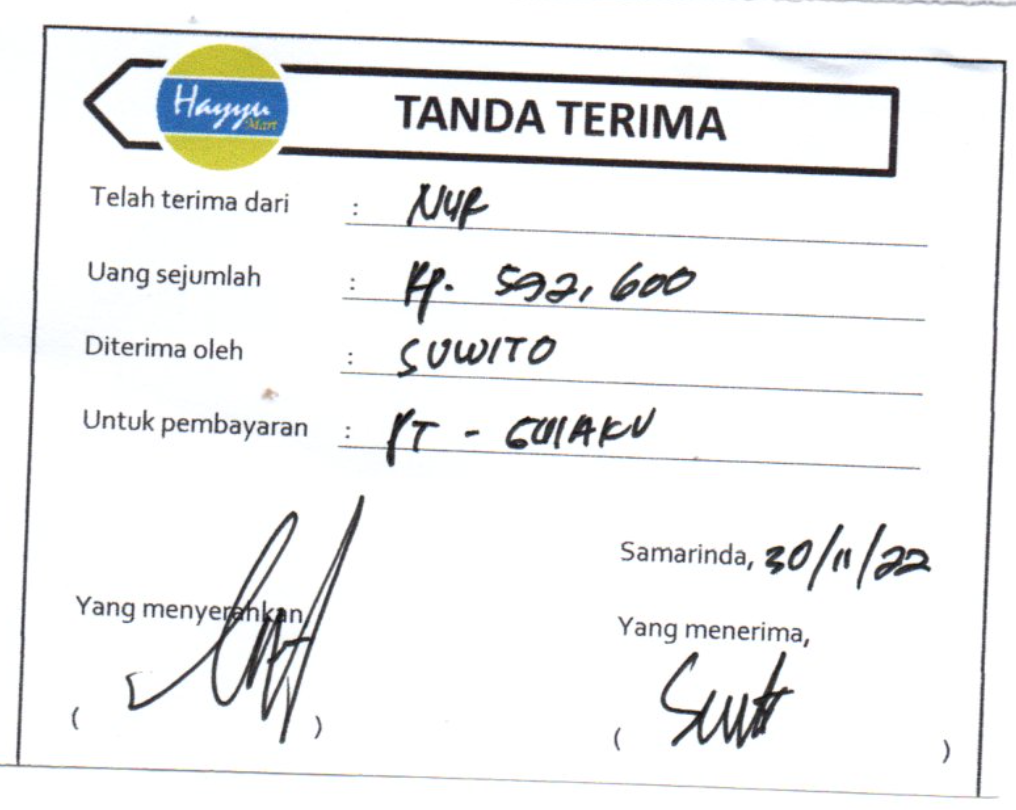 Hayyu
Mart
TANDA TERIMA
Telah terima dari : NUR
Uang sejumlah : Rp. 592,600
Diterima oleh : SUWITO
Untuk pembayaran : PT - GULAKU
Samarinda, 30/11/22
Yang menyerahkan
Yang menerima,
( )
( )